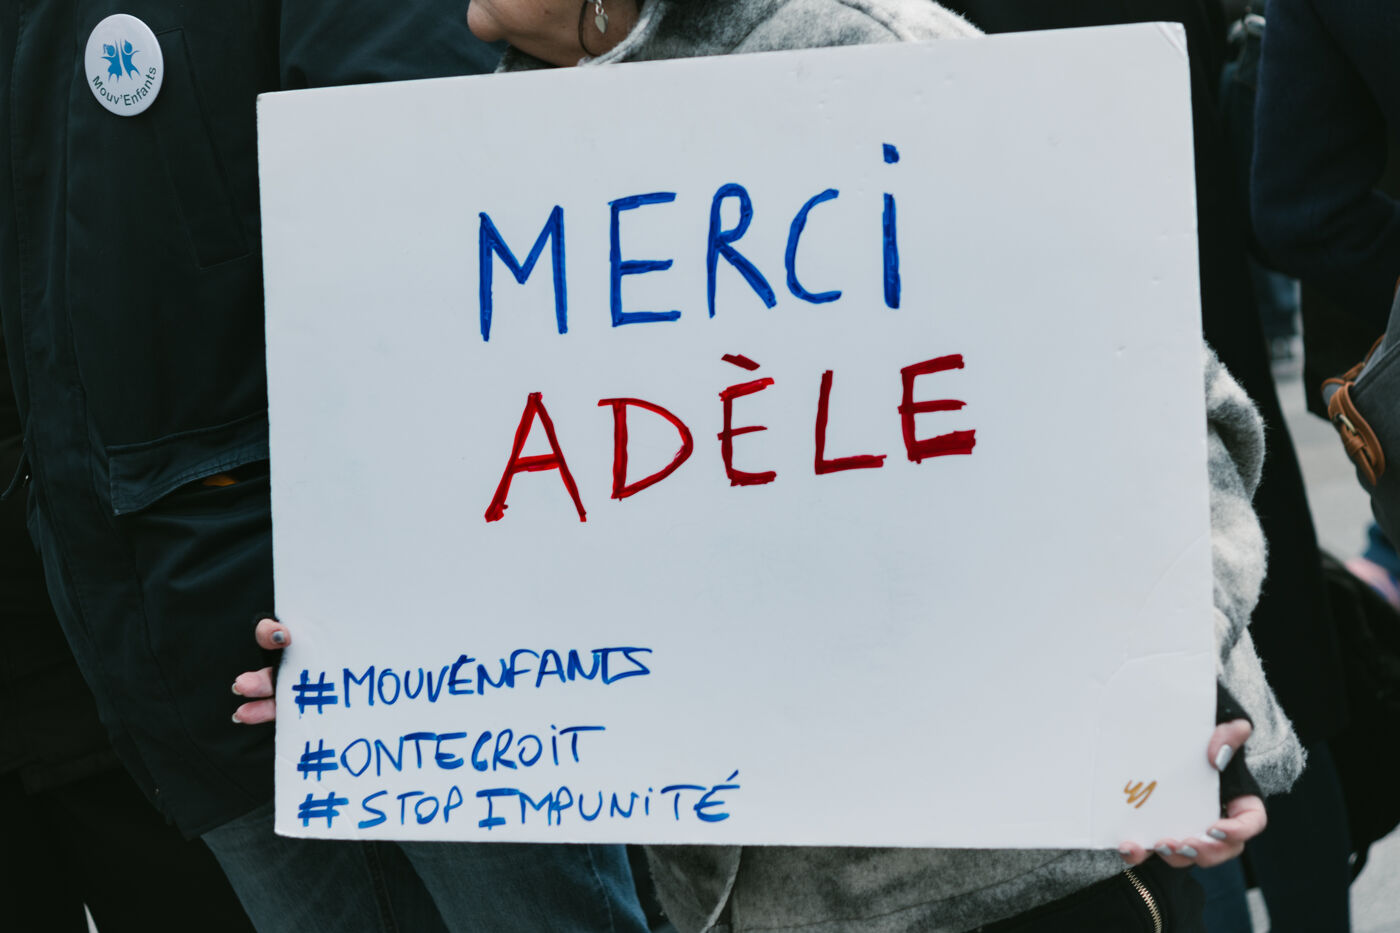 Mouv'Enfants
MERCi
ADÈLE
#MOUV'ENFANTS
#ONTECROiT
#STOP IMPUNiTÉ